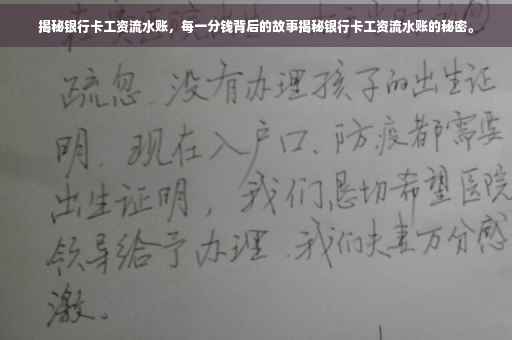 揭秘银行卡工资流水账，每一分钱背后的故事揭秘银行卡工资流水账的秘密。
疏忽、没有办理孩子的出生证
明、现在入户口、防疫都需要
出生证明，我们恳切希望医院
领导给予办理、我们夫妻万分感
激。